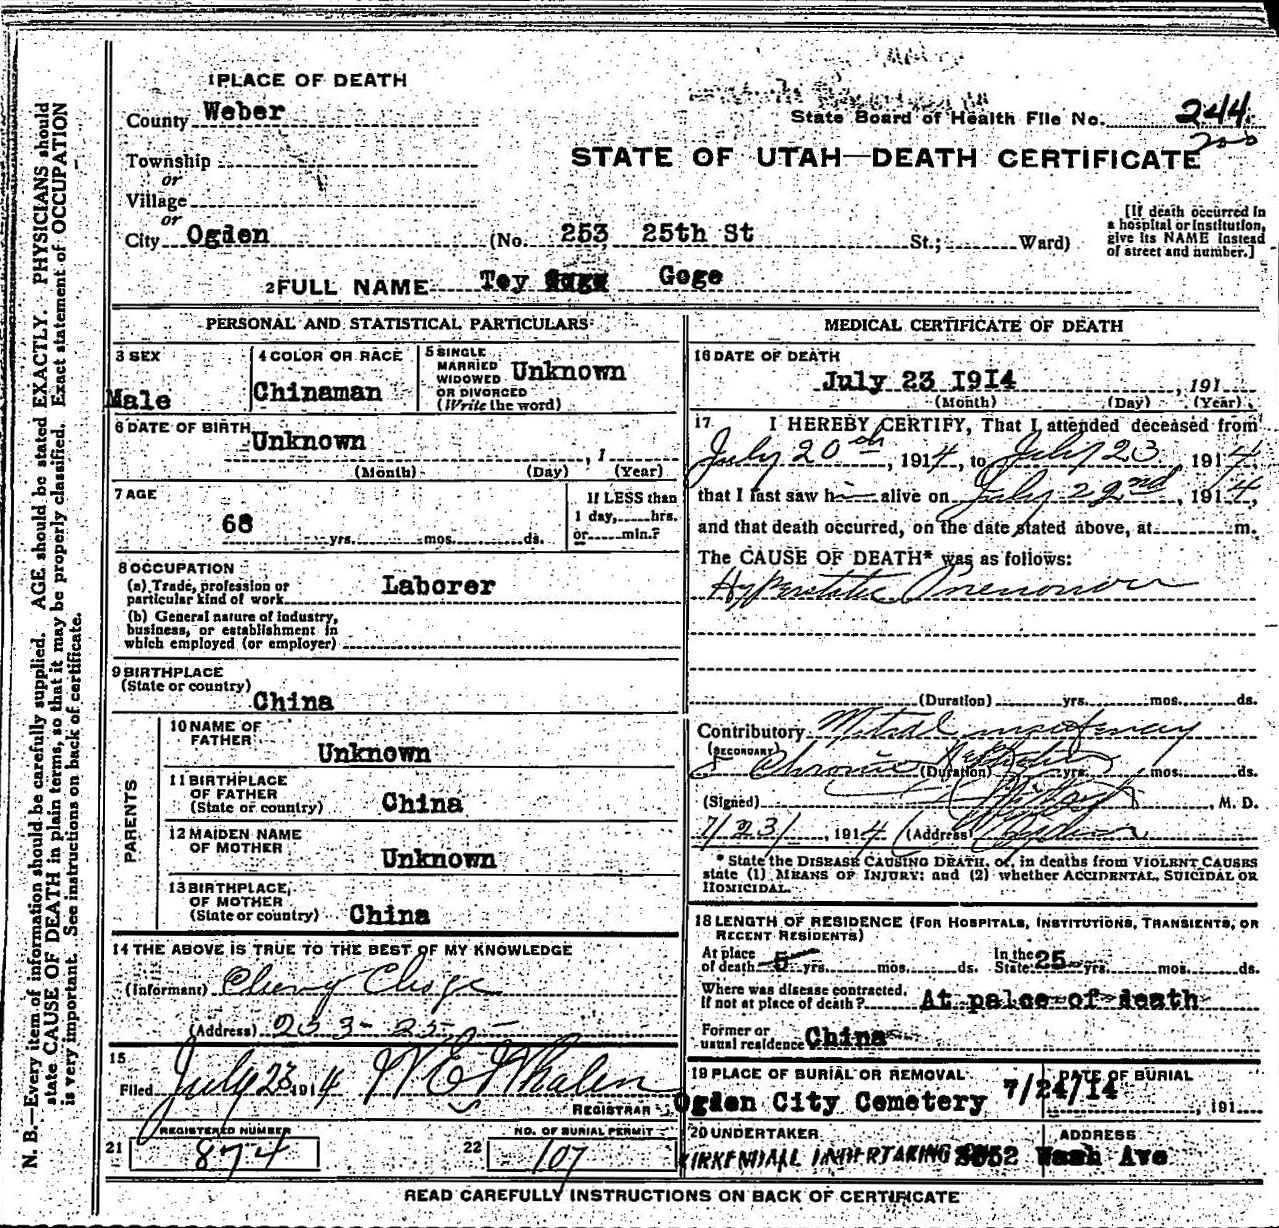 N. B.—Every item of information should be carefully supplied. AGE should be stated EXACTLY. PHYSICIANS should
state CAUSE OF DEATH in plain terms, so that it may be properly classified. Exact statement of OCCUPATION
is very important. See instructions on back of certificate.
1 PLACE OF DEATH
County Weber
State Board of Health File No. 244
200
Township
or
Village
or
STATE OF UTAH—DEATH CERTIFICATE
City Ogden (No. 253 25th St St.; Ward)
[If death occurred in
a hospital or institution,
give its NAME instead
of street and number.]
2 FULL NAME Toy Goge
PERSONAL AND STATISTICAL PARTICULARS
3 SEX
Male
4 COLOR OR RACE
Chinaman
5 SINGLE
MARRIED
WIDOWED
OR DIVORCED
(Write the word)
Unknown
6 DATE OF BIRTH
Unknown , 1
(Month) (Day) (Year)
7 AGE
68 yrs. mos. ds.
If LESS than
1 day, hrs.
or min.?
8 OCCUPATION
(a) Trade, profession or
particular kind of work Laborer
(b) General nature of industry,
business, or establishment in
which employed (or employer)
9 BIRTHPLACE
(State or country)
China
PARENTS
10 NAME OF
FATHER
Unknown
11 BIRTHPLACE
OF FATHER
(State or country) China
12 MAIDEN NAME
OF MOTHER
Unknown
13 BIRTHPLACE
OF MOTHER
(State or country) China
14 THE ABOVE IS TRUE TO THE BEST OF MY KNOWLEDGE
(Informant)
(Address) 253-25
15
Filed July 23 1914 W E Whalen
REGISTRAR
21 REGISTERED NUMBER
874
22 NO. OF BURIAL PERMIT
107
MEDICAL CERTIFICATE OF DEATH
16 DATE OF DEATH
July 23 1914 , 191
(Month) (Day) (Year)
17 I HEREBY CERTIFY, That I attended deceased from
July 20th, 1914, to July 23 1914,
that I last saw h alive on July 22nd, 1914,
and that death occurred, on the date stated above, at m.
The CAUSE OF DEATH* was as follows:
(Duration) yrs. mos. ds.
Contributory Mitral
(SECONDARY)
& Chronic Nephritis (Duration) yrs. mos. ds.
(Signed) , M. D.
7/23/, 1914 (Address) Ogden
* State the DISEASE CAUSING DEATH, or, in deaths from VIOLENT CAUSES
state (1) MEANS OF INJURY; and (2) whether ACCIDENTAL, SUICIDAL OR
HOMICIDAL.
18 LENGTH OF RESIDENCE (FOR HOSPITALS, INSTITUTIONS, TRANSIENTS, OR
RECENT RESIDENTS)
At place
of death 5 yrs. mos. ds.
In the
State 25 yrs. mos. ds.
Where was disease contracted,
if not at place of death? At palce of death
Former or
usual residence China
19 PLACE OF BURIAL OR REMOVAL
Ogden City Cemetery
DATE OF BURIAL
7/24/14 , 191
20 UNDERTAKER
KIRKENDALL UNDERTAKING
ADDRESS
Wash Ave
READ CAREFULLY INSTRUCTIONS ON BACK OF CERTIFICATE